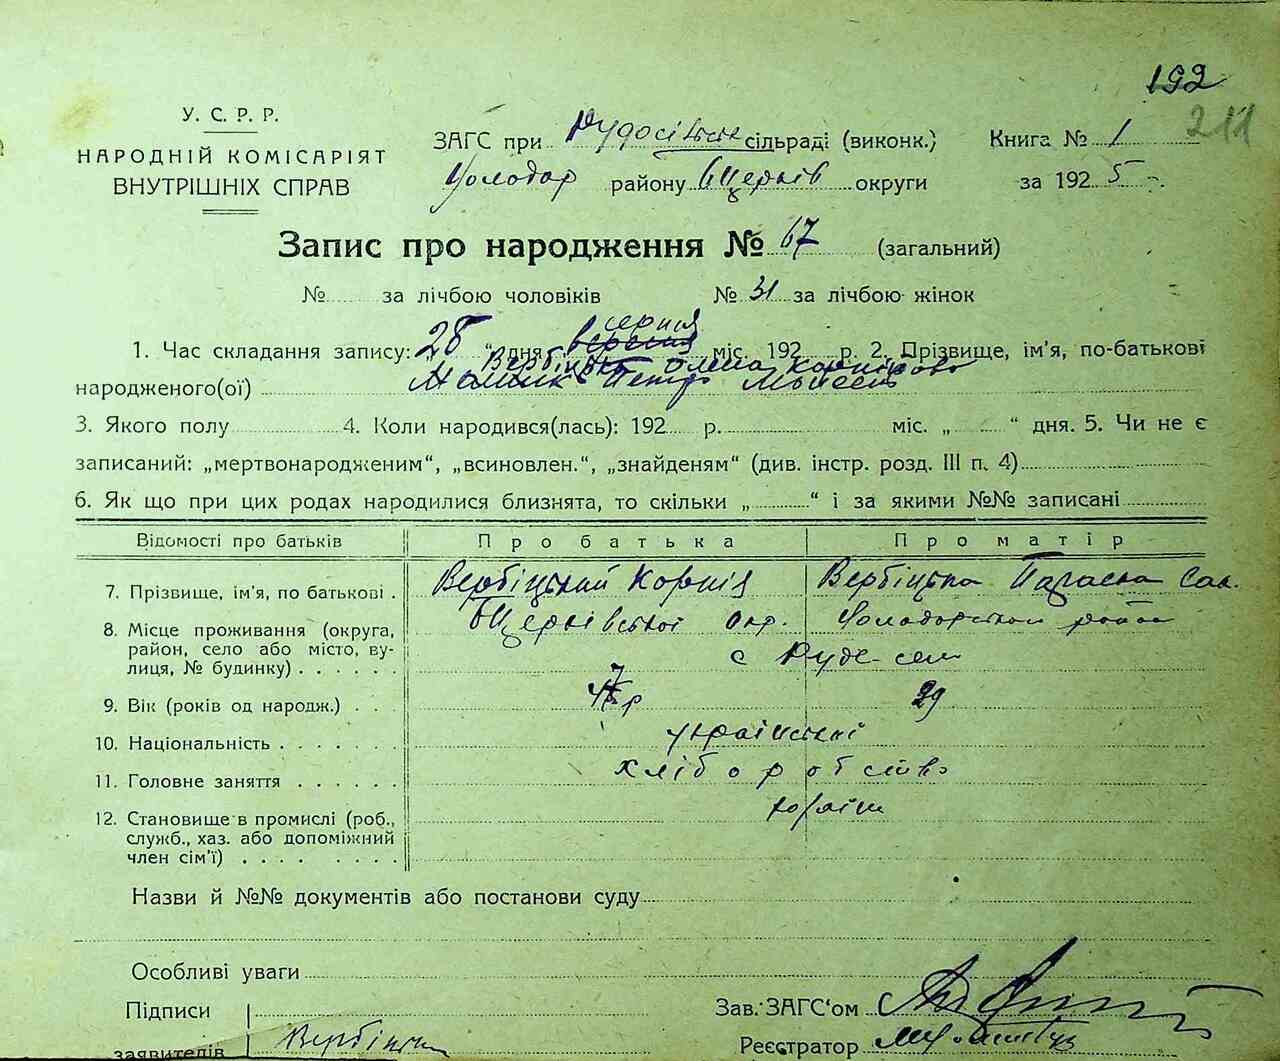 192
211
У. С. Р. Р.
НАРОДНІЙ КОМІСАРІЯТ
ВНУТРІШНІХ СПРАВ
ЗАГС при Рудосільськ сільраді (виконк.) Книга № 1
Володар району БЦерків округи за 1925
Запис про народження № 67 (загальний)
№ за лічбою чоловіків № 31 за лічбою жінок
серпня
1. Час складання запису: „28 “ дня вересня міс. 192 р. 2. Прізвище, ім'я, по-батькові
Вербіцька Олена Корніївна
народженого(ої) Петр
3. Якого полу 4. Коли народився(лась): 192 р. міс. „ “ дня. 5. Чи не є
записаний: „мертвонародженим“, „всиновлен.“, „знайденям“ (див. інстр. розд. III п. 4)
6. Як що при цих родах народилися близнята, то скільки „ “ і за якими №№ записані
Відомості про батьків Про батька Про матір
7. Прізвище, ім'я, по батькові . Вербіцький Корній Вербіцька Параска
8. Місце проживання (округа, БЦерківської окр. Володарськ район
район, село або місто, ву-
лиця, № будинку) . . . . . с Руде-село
9. Вік (років од народж.) . . . 47 р 29
10. Національність . . . . . . . українській
11. Головне заняття . . . . . . хліборобство
12. Становище в промислі (роб., хазаїн
служб., хаз. або допоміжний
член сім'ї) . . . . . . . .
Назви й №№ документів або постанови суду
Особливі уваги
Підписи Зав. ЗАГС'ом
заявителів Вербіцький Реєстратор